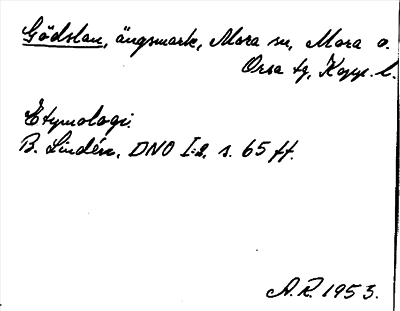 Gödslan, ängsmark, Mora sn, Mora o.
Orsa tg, Kopp. l.
Etymologi.
B. Lindén, DNO I:2, s. 65 ff.
A.R. 1953.